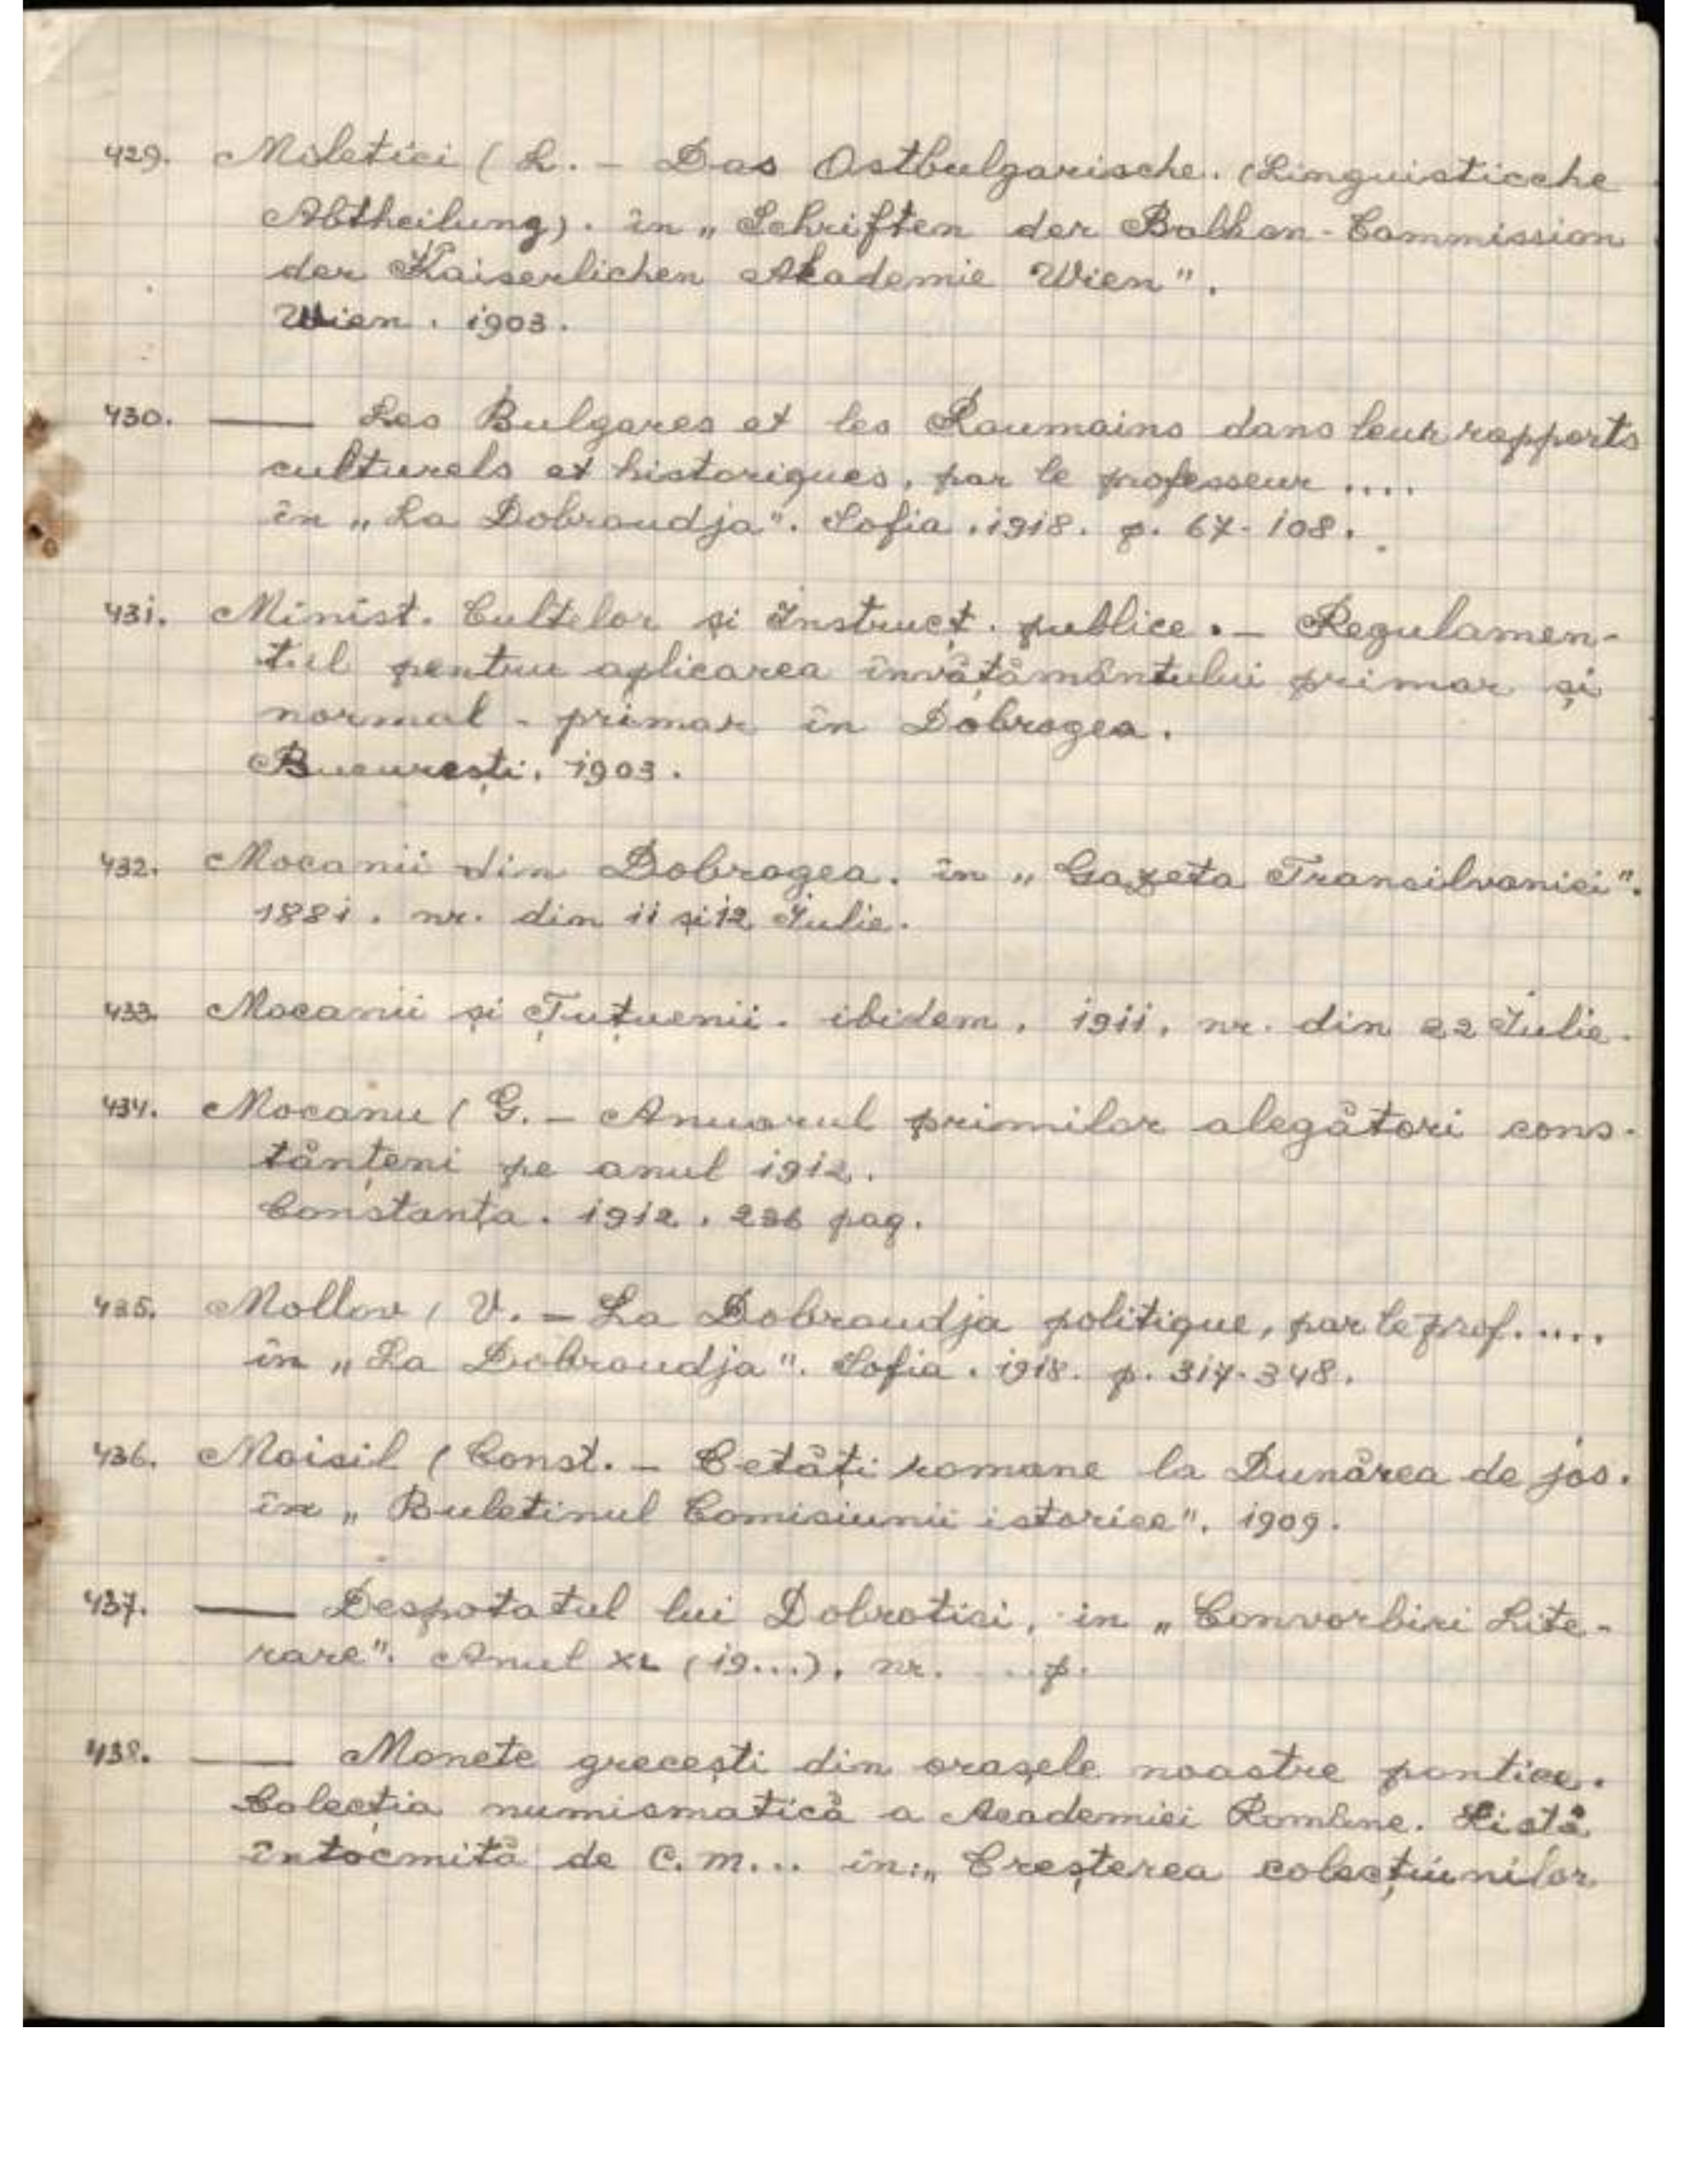 429. Miletici (L. - Das Ostbulgarische. (Linguisticche
Abtheilung). în „Schriften der Balkan-Commission
der Kaiserlichen Akademie Wien".
Wien. 1903.
430. —— Les Bulgares et les Roumains dans leur rapports
culturels et historiques, par le professeur ....
în „La Dobroudja". Sofia. 1918. p. 67-108.
431. Minist. Cultelor și Instrucț. publice. - Regulamen-
tul pentru aplicarea învățământului primar și
normal - primar în Dobrogea.
București. 1903.
432. Mocanii din Dobrogea. în „Gazeta Transilvaniei".
1881. nr. din 11 și 12 Iulie.
433. Mocanii și Țuțuenii. ibidem. 1911, nr. din 22 Iulie.
434. Mocanu (G. - Anuarul primilor alegători cons-
tănțeni pe anul 1912.
Constanța. 1912. 236 pag.
435. Mollov (V. - La Dobroudja politique, par le prof.....
în „La Dobroudja". Sofia. 1918. p. 317-348.
436. Moisil (Const. - Cetăți romane la Dunărea de jos.
în „Buletinul Comisiunii istorice". 1909.
437. —— Despotatul lui Dobrotici, in „Convorbiri Lite-
rare". Anul XL (19...), nr. ... p.
438. —— Monete grecești din orașele noastre pontice.
Colecția numismatică a Academiei Române. Listă
întocmită de C. M... în: „Creșterea colecțiunilor